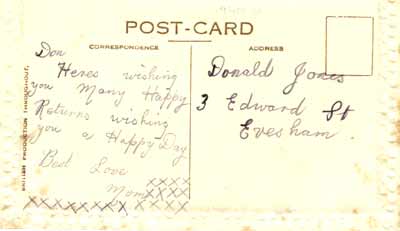 POST-CARD
CORRESPONDENCE
ADDRESS
BRITISH PRODUCTION THROUGHOUT.
Don
Heres wishing
you Many Happy
Returns wishing
you a Happy Day
Best Love
Mom XXXX
XXXX
XXXXXXXX XXXX
Donald Jones
3 Edward St
Evesham.